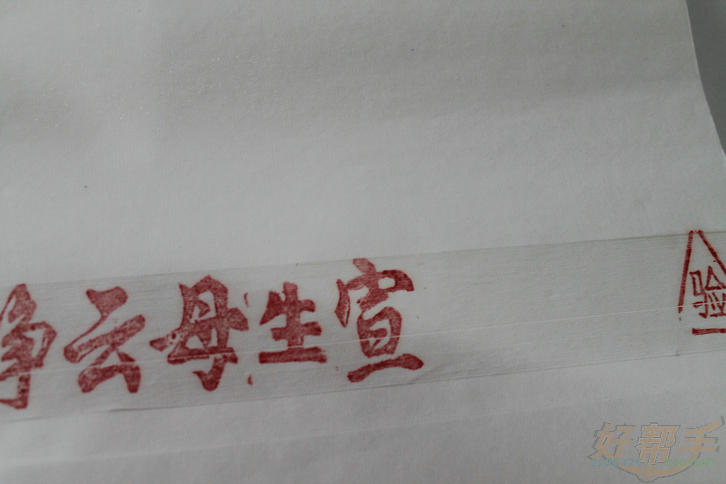 净云母生宣
验
好帮手